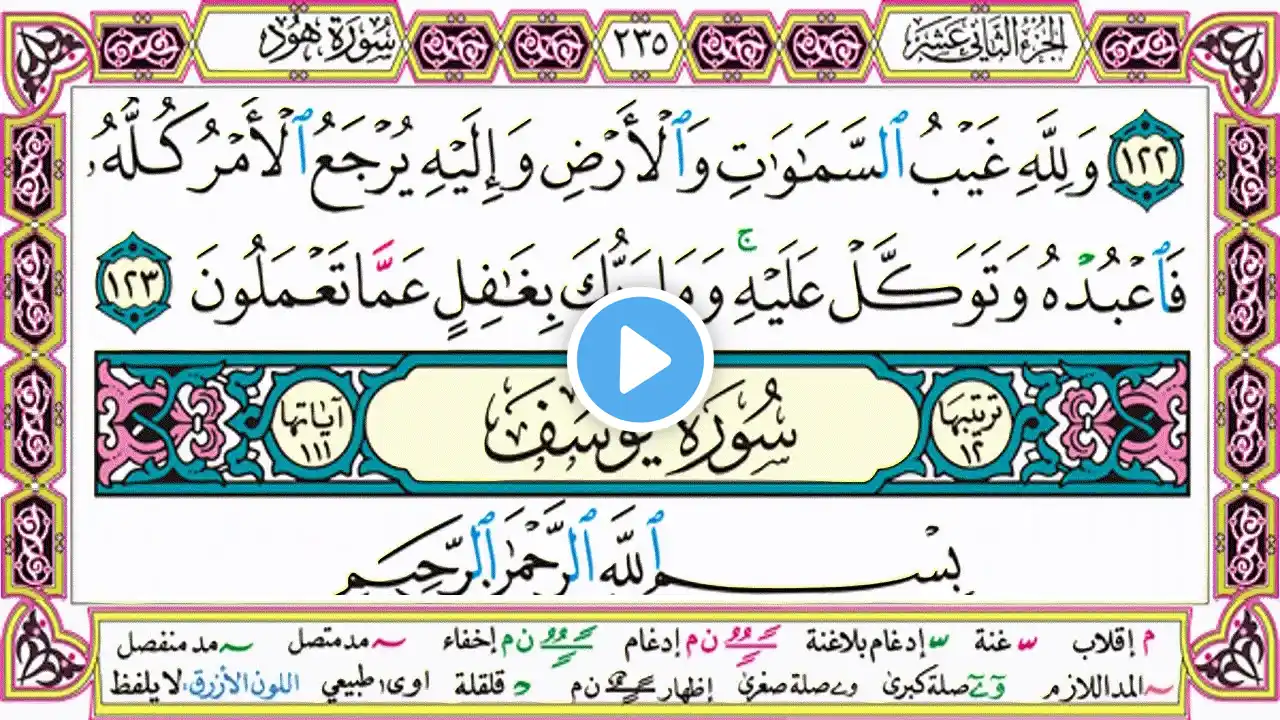 الجزء الثاني عشر ٢٣٥ سورة هود
١٢٢ وَلِلَّهِ غَيْبُ ٱلسَّمَـٰوَٰتِ وَٱلْأَرْضِ وَإِلَيْهِ يُرْجَعُ ٱلْأَمْرُ كُلُّهُۥ
فَٱعْبُدْهُ وَتَوَكَّلْ عَلَيْهِ ۚ وَمَا رَبُّكَ بِغَـٰفِلٍ عَمَّا تَعْمَلُونَ ١٢٣
ترتيبها ١٢ سُورَةُ يُوسُفَ آياتها ١١١
بِسْمِ ٱللَّهِ ٱلرَّحْمَـٰنِ ٱلرَّحِيمِ
م إقلاب س غنة س إدغام بلاغنة ن م إدغام ن م إخفاء ~ مد متصل ~ مد منفصل
~ المد اللازم و ے صلة كبرى و ے صلة صغرى ن م إظهار د قلقلة اوى طبيعي اللون الأزرق: لا يلفظ